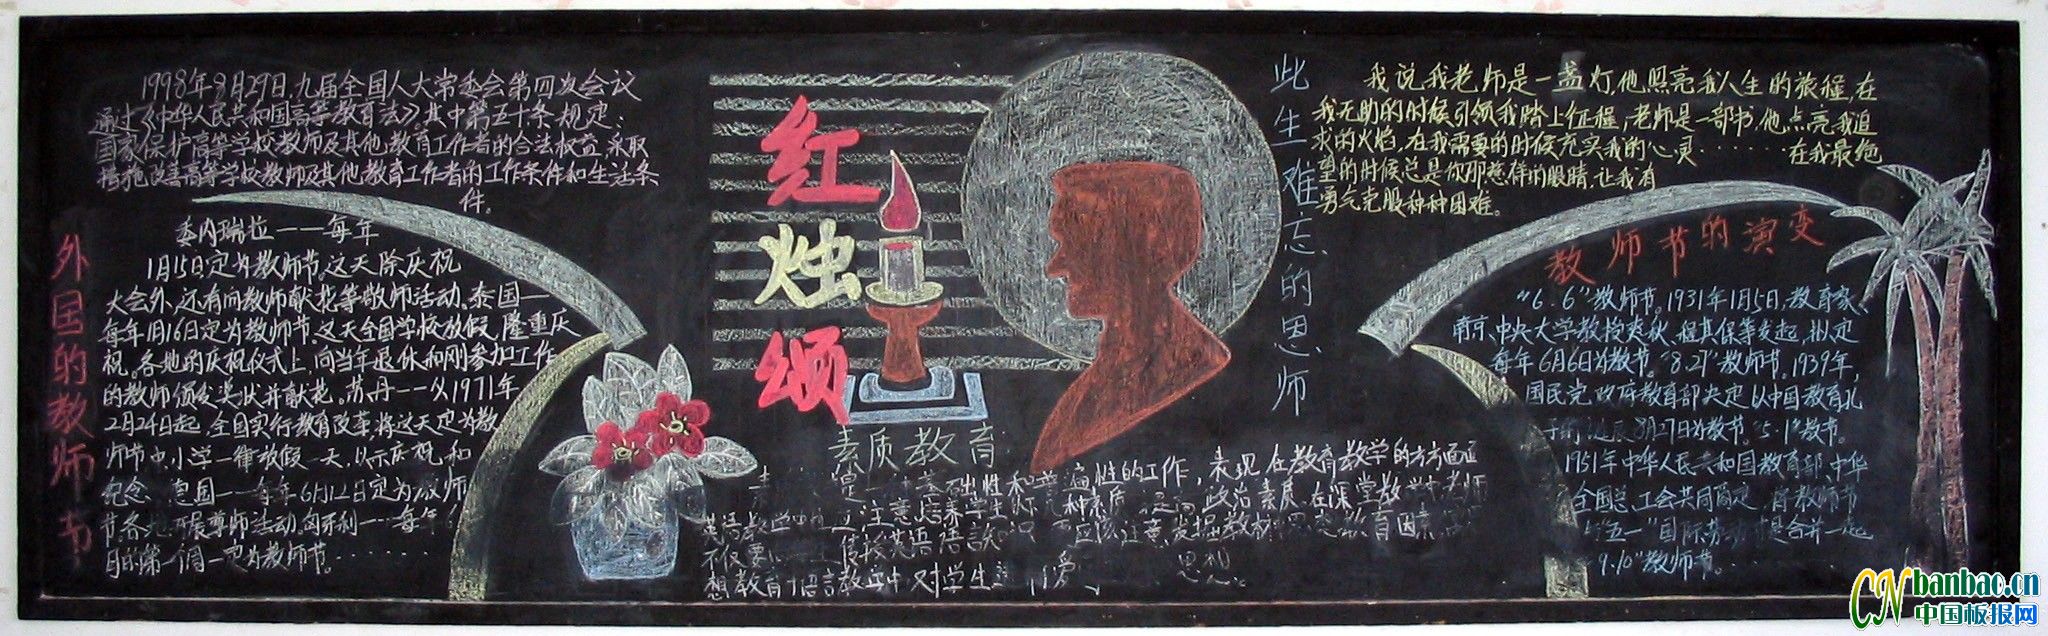 1998年8月29日,九届全国人大常委会第四次会议
通过《中华人民共和国高等教育法》其中第五十条规定:
国家保护高等学校教师及其他教育工作者的合法权益,采取
措施改善高等学校教师及其他教育工作者的工作条件和生活条
件。
外国的教师节
委内瑞拉——每年
1月15日定为教师节,这天除庆祝
大会外,还有向教师献花等敬师活动。泰国—
每年1月16日定为教师节。这天全国学校放假,隆重庆
祝。各地的庆祝仪式上,向当年退休和刚参加工作
的教师颁发奖状并献花。苏丹——从1971年
2月24日起,全国实行教育改革,将这天定为教
师节中、小学一律放假一天,以示庆祝和
纪念。德国——每年6月12日定为教师
节,各地开展尊师活动。匈牙利——每年6
月的第一个周一定为教师节。······
红
烛
颂
素质教育
基础性和普遍性的工作,表现在教育教学的方方面面
英语教学中 注意培养学生的 种素质 提高政治素质。在深 教学中老师
不仅要 传授英语语 应注意发掘教材 教育因素
想教育 语言教学中,对学生
此生难忘的恩师
我说我老师是一盏灯,他照亮我人生的旅程,在
我无助的时候引领我踏上征程;老师是一部书,他点亮我追
求的火焰,在我需要的时候充实我的心灵······在我最绝
望的时候总是你那慈祥的眼睛,让我有
勇气克服种种困难。
教师节的演变
“6·6”教师节。1931年1月5日,教育家、
南京、中央大学教授爽秋、程其保等发起,拟定
每年6月6日为教节。“8.27”教师节。1939年,
国民党政府教育部决定以中国教育
8月27日为教节。“5·1”教节。
1951年中华人民共和国教育部、中华
全国总工会共同商定,将教师节
与“五一”国际劳动 合并一起
“9.10”教师节。
CNbanbao.cn
中国板报网